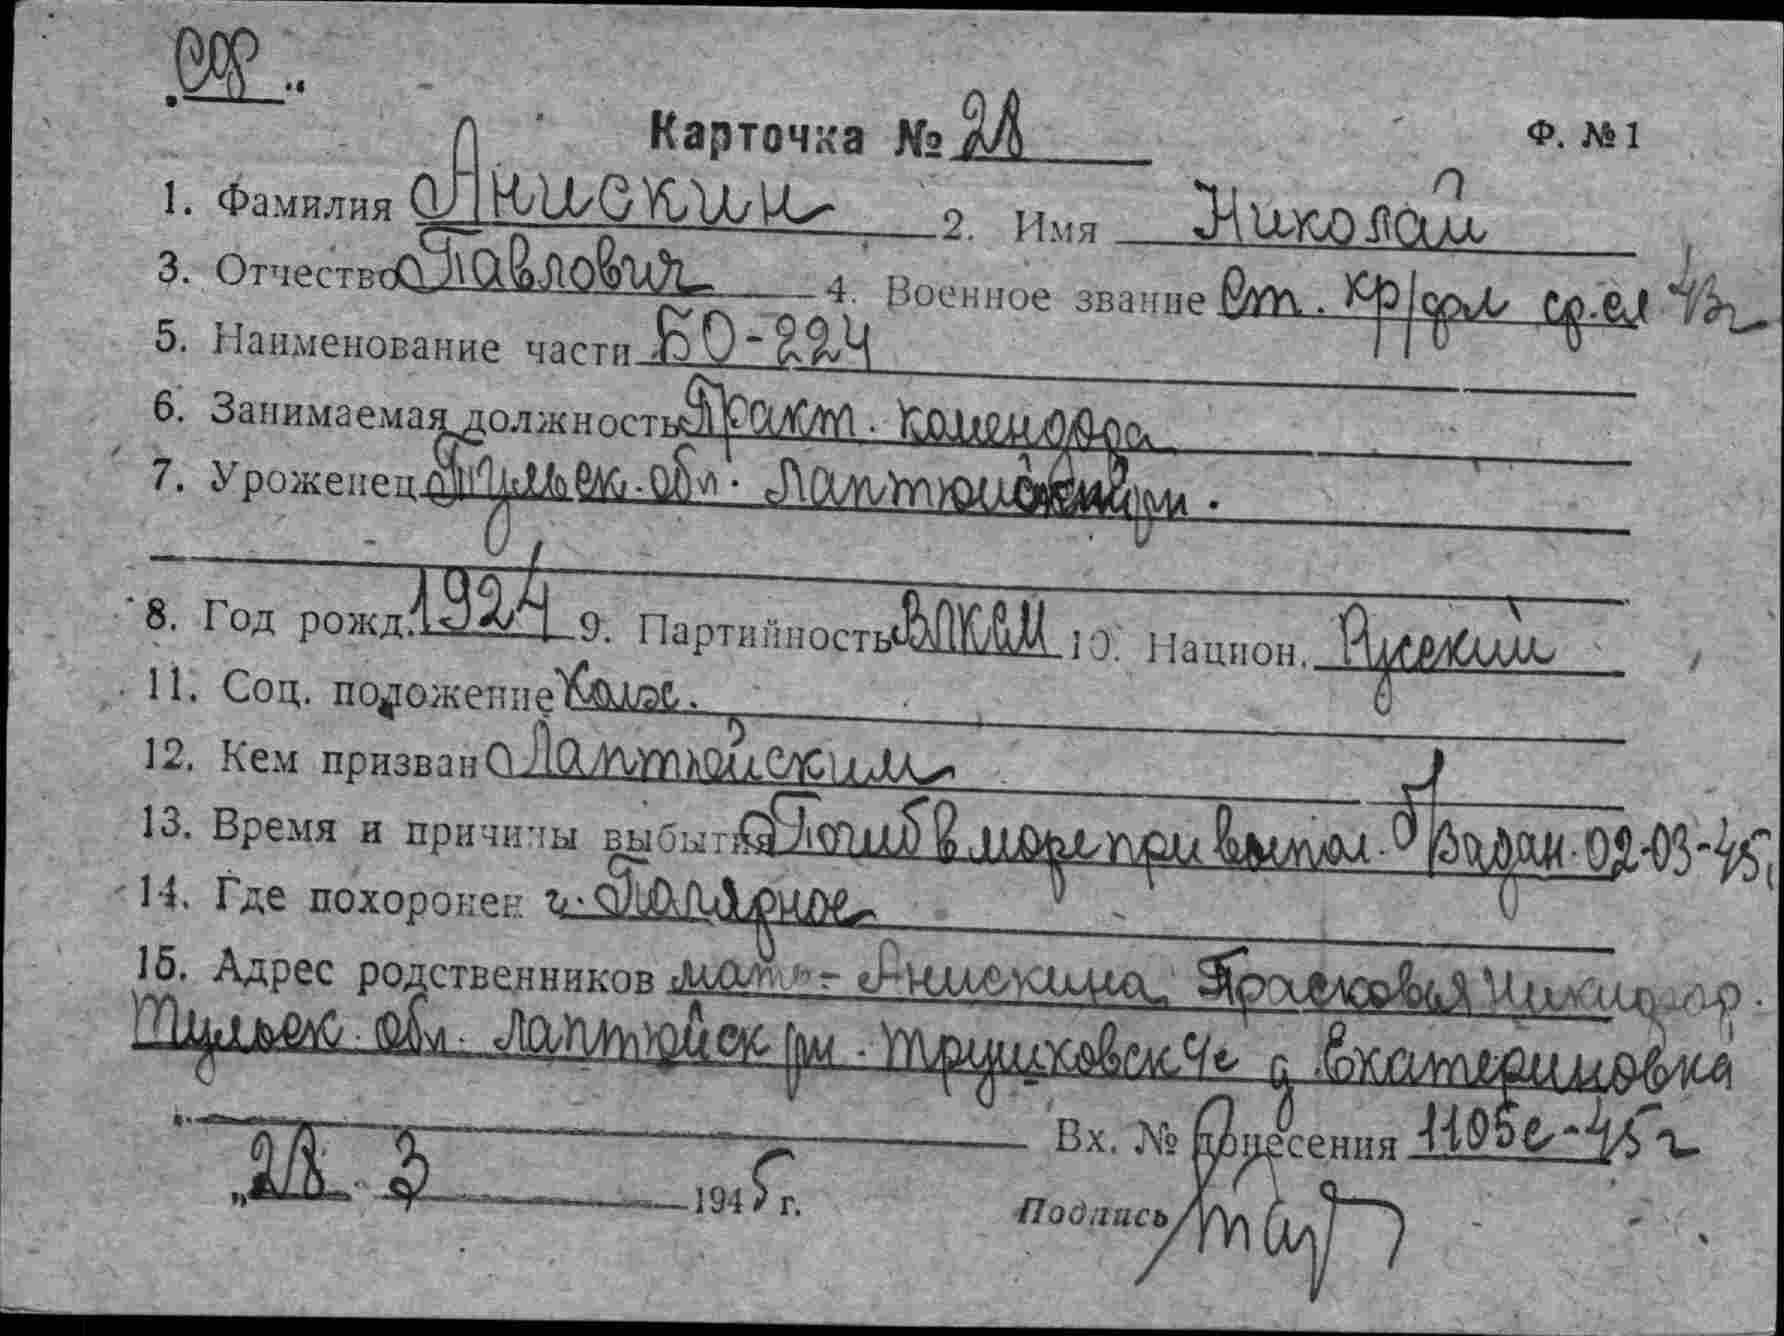 СФ
Карточка № 28 Ф. № 1
1. Фамилия Анискин 2. Имя Николай
3. Отчество Павлович 4. Военное звание Ст. кр/фл ср. сл 43г
5. Наименование части БО-224
6. Занимаемая должность Практ. комендора
7. Уроженец Тульск. обл. Лаптюйский рн.
8. Год рожд. 1924 9. Партийность ВЛКСМ 10. Национ. Русский
11. Соц. положение Колх.
12. Кем призван Лаптюйским
13. Время и причины выбытия Погиб в море при выпол. б/задан. 02-03-45
14. Где похоронен г. Полярное
15. Адрес родственников мать - Анискина Прасковья Никифор.
Тульск. обл. Лаптюйск рн. Трушковск с д. Екатериновка
Вх. № донесения 1105с-45г
„28 3 1945 г. Подпись